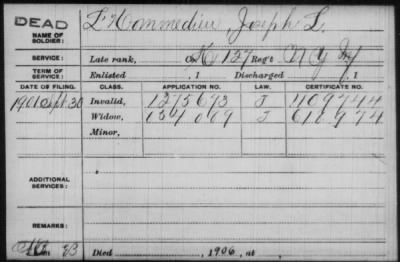 DEAD
NAME OF SOLDIER: L'Hommedieu Joseph L.
SERVICE: Late rank, Co K, 127 Reg't N Y Inf
TERM OF SERVICE: Enlisted , 1 Discharged , 1
DATE OF FILING. CLASS. APPLICATION NO. LAW. CERTIFICATE NO.
1901 Sept 30 Invalid, 1275673 J 409744
Widow, J 618974
Minor,
ADDITIONAL SERVICES:
REMARKS:
Died , 1906, at